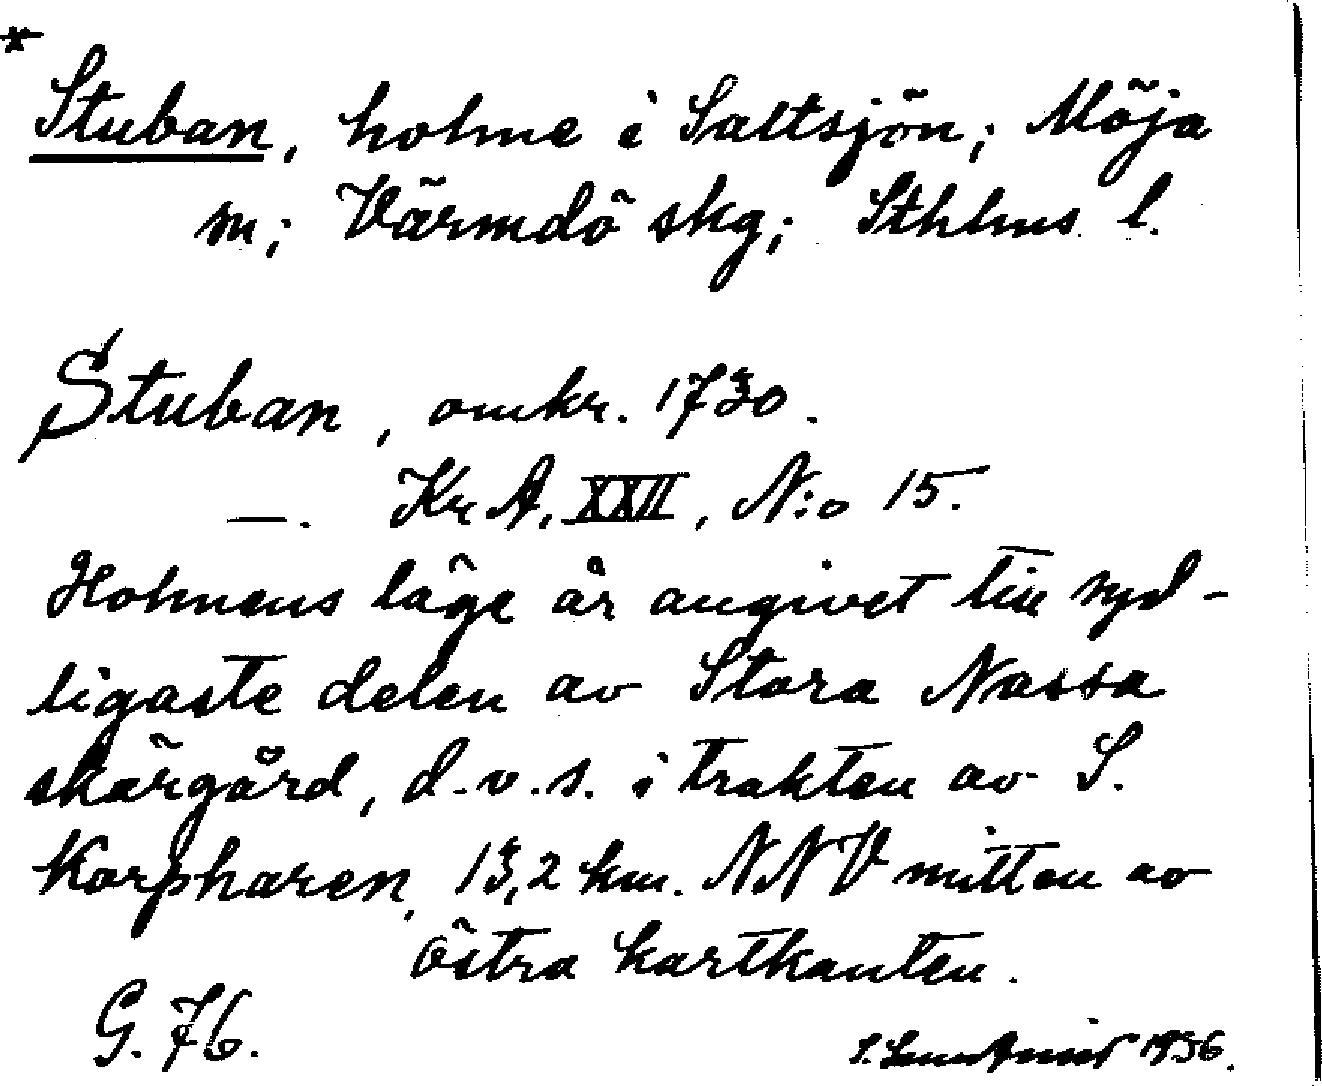 *
Stuban, holme i Saltsjön; Möja
sn; Värmdö skg; Sthlms l.
Stuban, omkr. 1730.
—. Kr A, XXII, N:o 15.
Holmens läge är angivet till syd-
ligaste delen av Stora Nassa
skärgård, d.v.s. i trakten av S.
Korpharen, 13,2 km. NNV mitten av
östra kartkanten.
G. 76.
S. 1936.